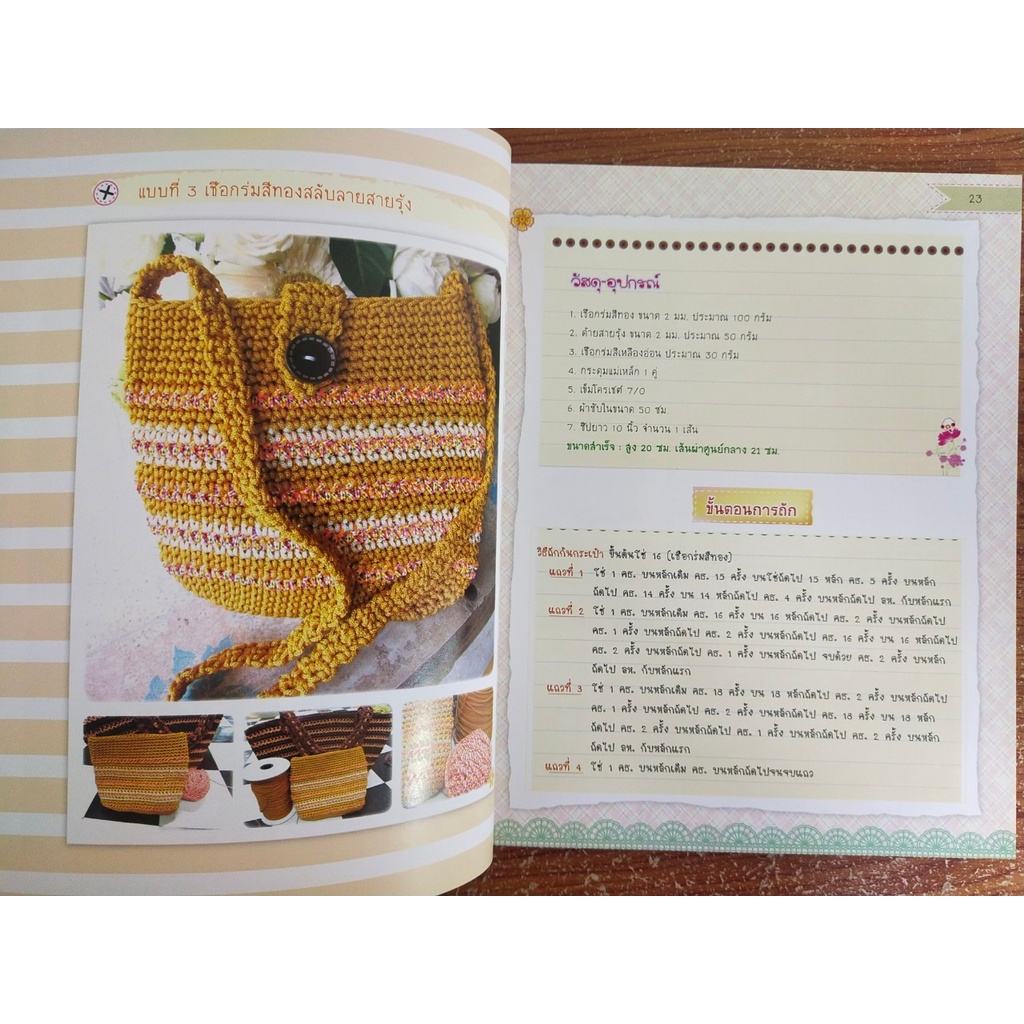 แบบที่ 3 เชือกร่มสีทองสลับลายสายรุ้ง
23
วัสดุ-อุปกรณ์
1. เชือกร่มสีทอง ขนาด 2 มม. ประมาณ 100 กรัม
2. ด้ายสายรุ้ง ขนาด 2 มม. ประมาณ 50 กรัม
3. เชือกร่มสีเหลืองอ่อน ประมาณ 30 กรัม
4. กระดุมแม่เหล็ก 1 คู่
5. เข็มโครเชต์ 7/0
6. ผ้าซับในขนาด 50 ซม.
7. ซิปยาว 10 นิ้ว จำนวน 1 เส้น
ขนาดสำเร็จ : สูง 20 ซม. เส้นผ่าศูนย์กลาง 21 ซม.
ขั้นตอนการถัก
วิธีถักก้นกระเป๋า ขึ้นต้นโซ่ 16 (เชือกร่มสีทอง)
แถวที่ 1 โซ่ 1 คธ. บนหลักเดิม คธ. 15 ครั้ง บนโซ่ถัดไป 15 หลัก คธ. 5 ครั้ง บนหลัก
ถัดไป คธ. 14 ครั้ง บน 14 หลักถัดไป คธ. 4 ครั้ง บนหลักถัดไป ลห. กับหลักแรก
แถวที่ 2 โซ่ 1 คธ. บนหลักเดิม คธ. 16 ครั้ง บน 16 หลักถัดไป คธ. 2 ครั้ง บนหลักถัดไป
คธ. 1 ครั้ง บนหลักถัดไป คธ. 2 ครั้ง บนหลักถัดไป คธ. 16 ครั้ง บน 16 หลักถัดไป
คธ. 2 ครั้ง บนหลักถัดไป คธ. 1 ครั้ง บนหลักถัดไป จบด้วย คธ. 2 ครั้ง บนหลัก
ถัดไป ลห. กับหลักแรก
แถวที่ 3 โซ่ 1 คธ. บนหลักเดิม คธ. 18 ครั้ง บน 18 หลักถัดไป คธ. 2 ครั้ง บนหลักถัดไป
คธ. 1 ครั้ง บนหลักถัดไป คธ. 2 ครั้ง บนหลักถัดไป คธ. 18 ครั้ง บน 18 หลัก
ถัดไป คธ. 2 ครั้ง บนหลักถัดไป คธ. 1 ครั้ง บนหลักถัดไป คธ. 2 ครั้ง บนหลัก
ถัดไป ลห. กับหลักแรก
แถวที่ 4 โซ่ 1 คธ. บนหลักเดิม คธ. บนหลักถัดไปจนจบแถว